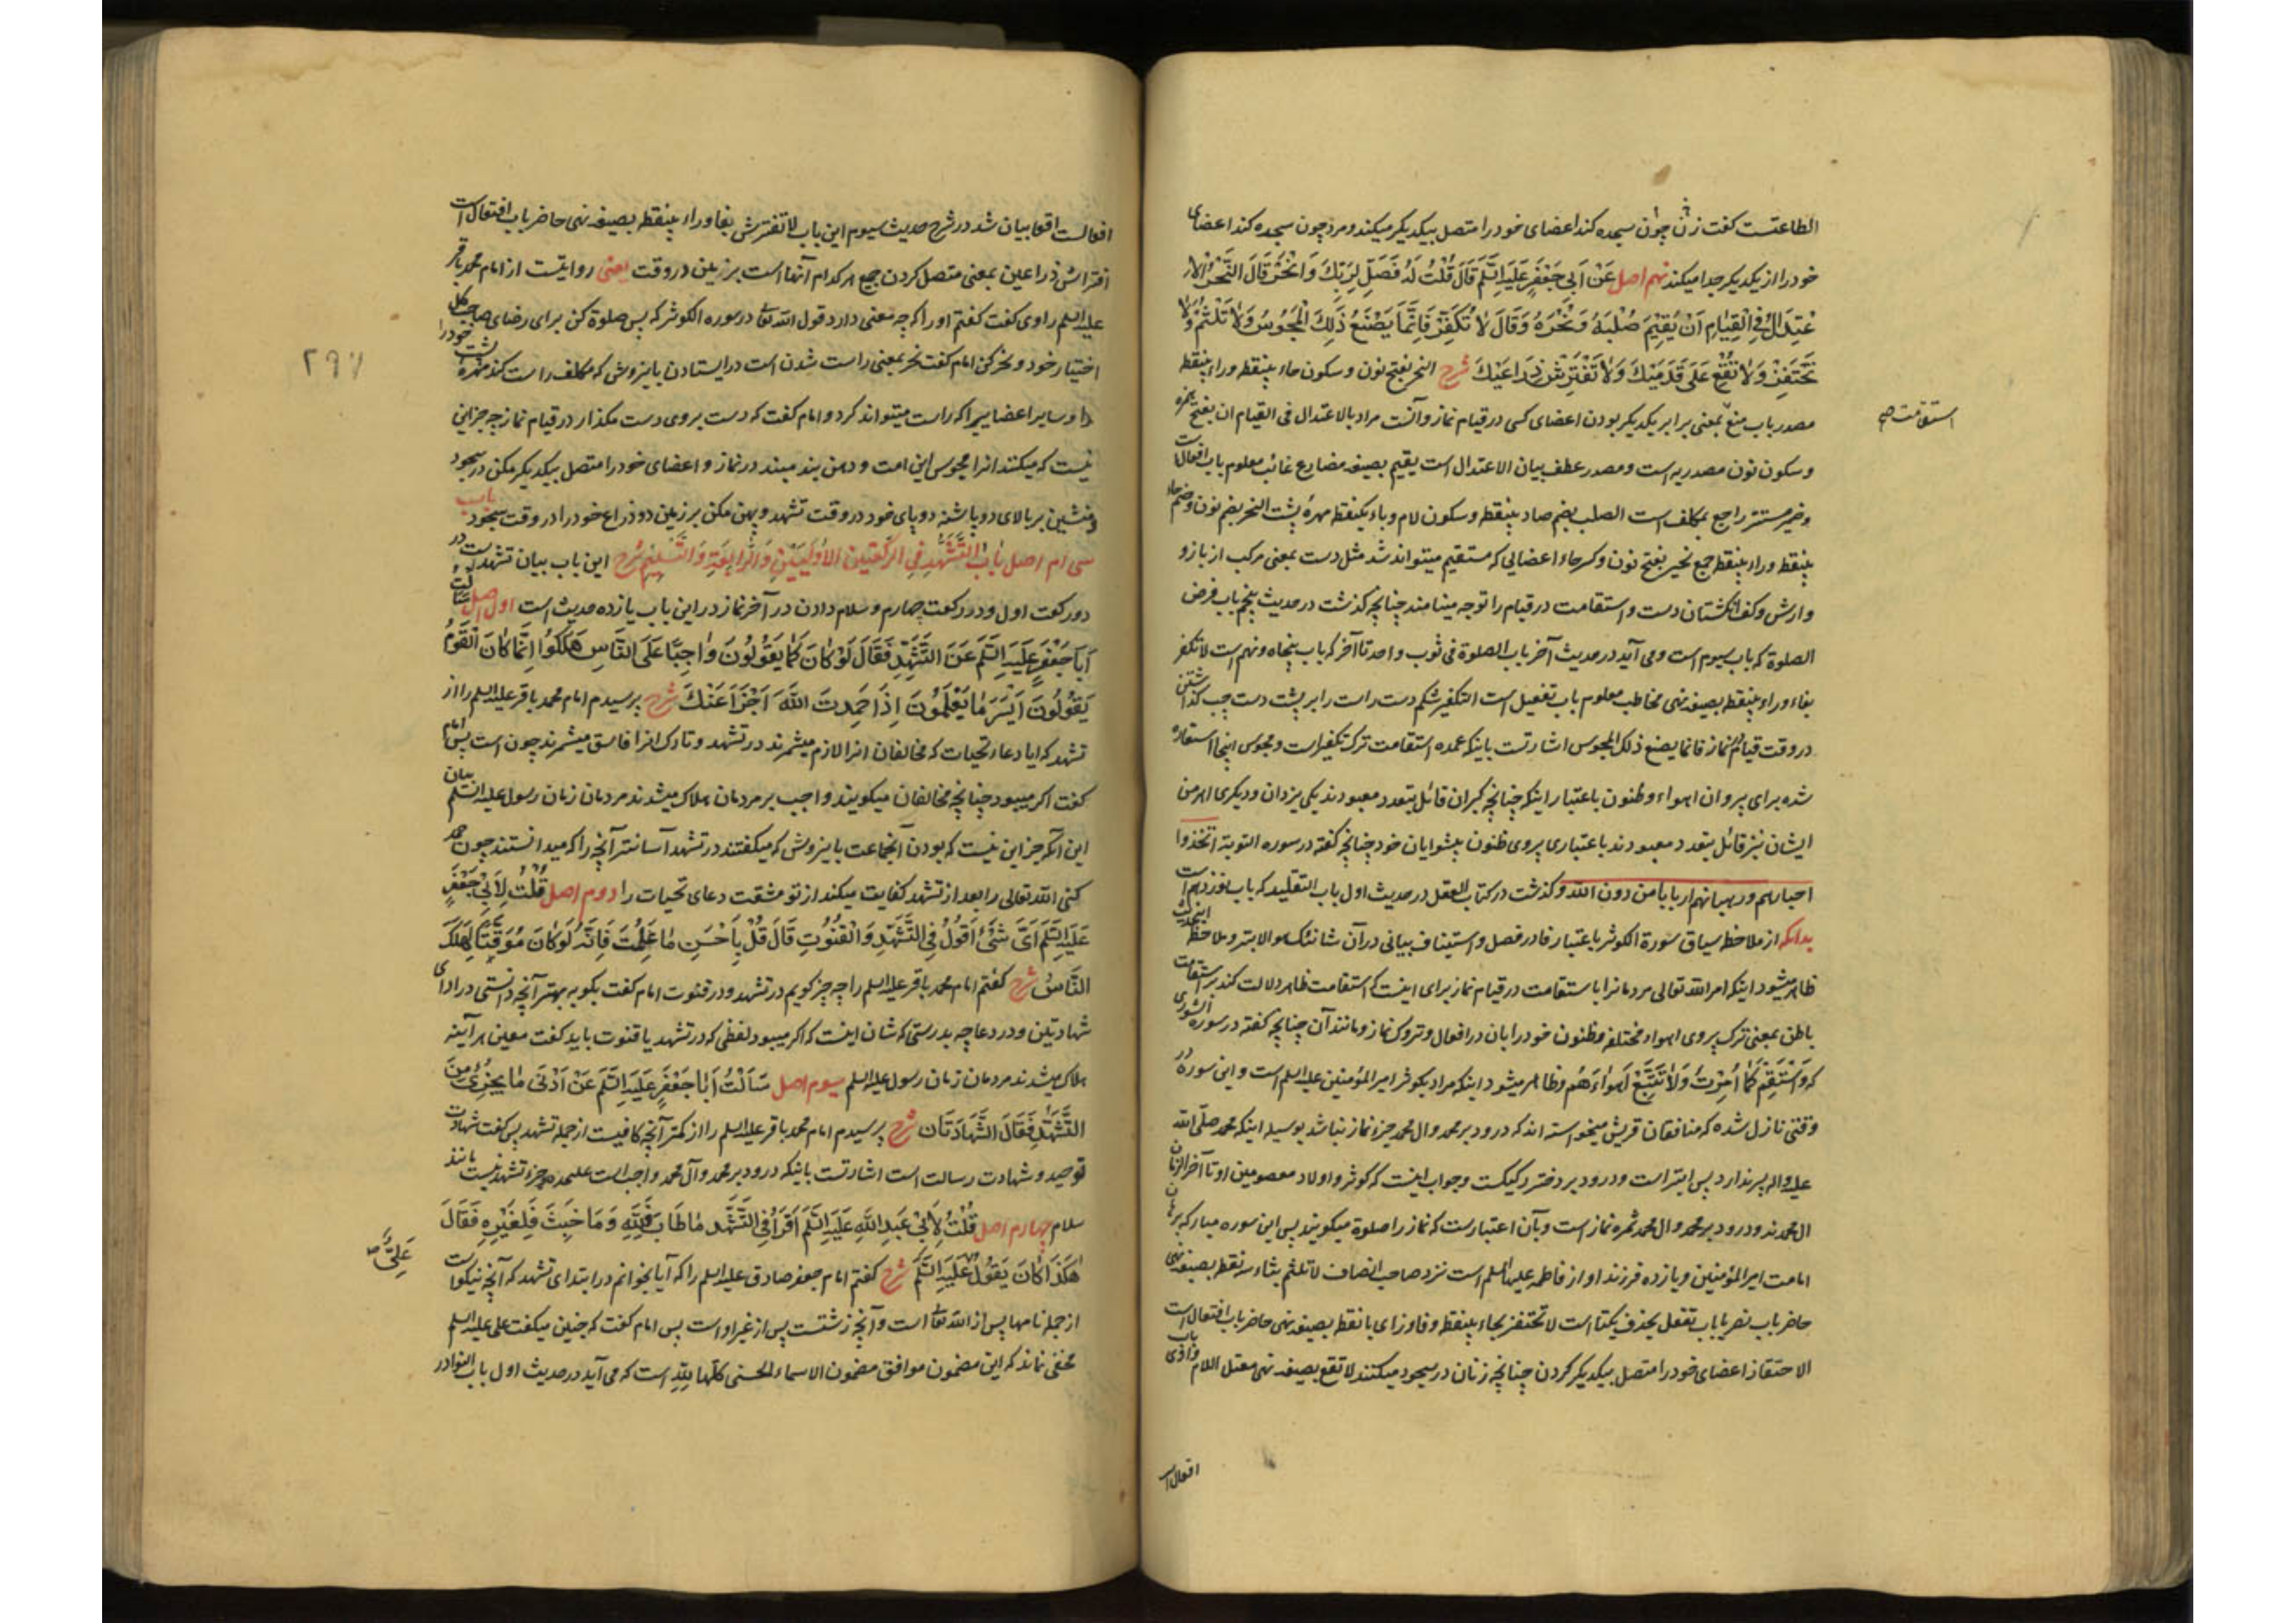 الطاعتست کفت زن چون سجده کند اعضای خود را متصل بیکدیکر میکند و مرد چون سجده کند اعضای
خود را از یکدیکر جدا میکند نهم اصل عَنْ اَبِی جَعْفَرٍ عَلَیْهِ السَّلَمُ قَالَ قُلْتُ لَهُ فَصَلِّ لِرَبِّكَ وَانْحَرْ قَالَ النَّحْرُ الْاِ
عْتِدَالُ فِی الْقِیَامِ اَنْ یُقِیْمَ صُلْبَهُ وَنَحْرَهُ وَقَالَ لَا تُکَفِّرْ فَاِنَّمَا یَصْنَعُ ذٰلِكَ الْمَجُوْسُ وَلَا تَلَثَّمْ وَلَا
تَحْتَفِزْ وَلَا تُقْعِ عَلٰی قَدَمَیْكَ وَلَا تَفْتَرِشْ ذِرَاعَیْكَ شرح النحر بفتح نون و سکون حاء بینقطه و راء بینقطه
مصدر باب منع بمعنی برابر یکدیکر بودن اعضای کسی در قیام نماز و آنست مراد بالاعتدال فی القیام ان بفتح همزه
استقامت صح
و سکون نون مصدریه است و مصدر عطف بیان الاعتدال است یقیم بصیغه مضارع غائب معلوم باب افعال است
و ضمیر مستتر راجع بمکلف است الصلب بضم صاد بینقطه و سکون لام و باء یکنقطه مهرهٔ پشت النحر بضم نون و ضم حاء
بینقطه و راء بینقطه جمع نحیر بفتح نون و کسر حاء اعضایی که مستقیم میتواند شد مثل دست بمعنی مرکب از بازو
و ارش و کف انکشتان دست و استقامت در قیام را توجه مینامند چنانچه کذشت در حدیث پنجم باب فرض
الصلوة که باب سیوم است و می آید در حدیث آخر باب الصلوة فی ثوب واحد تا آخر که باب پنجاه و نهم است لا تکفر
بفاء و راء بینقطه بصیغه نهی مخاطب معلوم باب تفعیل است التکفیر شکم دست راست را بر پشت دست چپ کذاشتن
در وقت قیام نماز فانما یصنع ذلك المجوس اشارتست باینکه عمده استقامت ترک تکفیر است و مجوس اینجا استعاره
شده برای پیروان اهواء و ظنون باعتبار اینکه چنانچه کبران قائل بتعدد معبودند یکی یزدان و دیکری اهرمن
ایشان نیز قائل بتعدد معبودند باعتباری پیروی ظنون پیشوایان خود چنانچه کفته در سوره التوبة اتخذوا
احبارهم و رهبانهم اربابا من دون الله و کذشت در کتاب العقل در حدیث اول باب التقلید که باب نوزدهم است
بدانکه از ملاحظه سیاق سورة الکوثر باعتبار فا در فصل و استیناف بیانی در آن شانئك هو الابتر و ملاحظه اینحدیث
ظاهر میشود اینکه امر الله تعالی مردمانرا باستقامت در قیام نماز برای اینست که استقامت ظاهر دلالت کند بر استقامت
باطن بمعنی ترک پیروی اهواء مختلفه و ظنون خود رایان در افعال و تروک نماز و مانند آن چنانچه کفته در سوره الشوری
که وَاسْتَقِمْ کَمَا اُمِرْتَ وَلَا تَتَّبِعْ اَهْوَاءَهُمْ و ظاهر میشود اینکه مراد بکوثر امیر المؤمنین علیه السلم است و این سوره در
وقتی نازل شده که منافقان قریش میخواسته اند که درود بر محمد و ال محمد جزء نماز نباشد بوسیله اینکه محمد صلّی الله
علیه و اله پسر ندارد پس ابتر است و درود بر دختر رکیکست و جواب اینست که کوثر و اولاد معصومین او تا آخر الزمان
ال محمدند و درود بر محمد و ال محمد ثمره نماز است و بآن اعتبار است که نماز را صلوة میکویند پس این سوره مبارکه برهان
امامت امیر المؤمنین و یازده فرزند او از فاطمه علیها السلم است نزد صاحب انصاف لا تلثم بثاء سه نقطه بصیغه نهی
حاضر باب نصر یا باب تفعل بحذف یکتا است لا تحتفز بحاء بینقطه و فا و زای با نقطه بصیغه نهی حاضر باب افتعال است
الاحتفاز اعضای خود را متصل بیکدیکر کردن چنانچه زنان در سجود میکنند لا تقع بصیغه نهی معتل اللام واوی باب
افعال است
افعالست اقعا بیان شد در شرح حدیث سیوم این باب لا تفترش بفا و راء بینقطه بصیغه نهی حاضر باب افتعال است
افتراش ذراعین بمعنی متصل کردن جمیع هر کدام آنها است بر زمین در وقت یعنی روایتست از امام محمد باقر
علیه السلم راوی کفت کفتم او را که چه معنی دارد قول الله تعالی در سوره الکوثر که پس صلوة کن برای رضای صاحب کل
اختیار خود و نحر کن امام کفت نحر بمعنی راست شدن است در ایستادن باینروش که مکلف راست کند مهرهٔ پشت خود را
۲۹۷
و سایر اعضاییرا که راست میتواند کرد و امام کفت که دست بروی دست مکذار در قیام نماز چه جز این
نیست که میکنند انرا مجوسی این امت و دهن بند مبند در نماز و اعضای خود را متصل بیکدیکر مکن در سجود
و منشین بر بالای دو پاشنه دو پای خود در وقت تشهد و پهن مکن بر زمین دو ذراع خود را در وقت سجود باب
سی ام اصل بَابُ التَّشَهُّدِ فِی الرَّکْعَتَیْنِ الْاُوْلَیَیْنِ وَالرَّابِعَةِ وَالتَّسْلِیْمِ شرح این باب بیان تشهد است در
دو رکعت اول و در رکعت چهارم و سلام دادن در آخر نماز در این باب یازده حدیث است اول اصل سَاَلْتُ
اَبَا جَعْفَرٍ عَلَیْهِ السَّلَمُ عَنِ التَّشَهُّدِ فَقَالَ لَوْ کَانَ کَمَا یَقُوْلُوْنَ وَاجِبًا عَلَی النَّاسِ هَلَکُوْا اِنَّمَا کَانَ الْقَوْمُ
یَقُوْلُوْنَ اَیْسَرَ مَا یَعْلَمُوْنَ اِذَا حَمِدْتَ اللهَ اَجْزَاَ عَنْكَ شرح پرسیدم امام محمد باقر علیه السلم را از
تشهد که ایا دعاء تحیات که مخالفان انرا لازم میشمرند در تشهد و تارک انرا فاسق میشمرند چون است پس امام
کفت اکر میبود چنانچه مخالفان میکویند واجب بر مردمان هلاک میشدند مردمان زمان رسول علیه السلم بیان
این آنکه جز این نیست که بودن آنجماعت باینروش که میکفتند در تشهد آسانتر آنچه را که میدانستند چون حمد
کنی الله تعالی را بعد از تشهد کفایت میکند از تو مشقت دعای تحیات را دوم اصل قُلْتُ لِاَبِیْ جَعْفَرٍ
عَلَیْهِ السَّلَمُ اَیَّ شَیْئٍ اَقُوْلُ فِی التَّشَهُّدِ وَالْقُنُوْتِ قَالَ قُلْ بِاَحْسَنِ مَا عَلِمْتَ فَاِنَّهُ لَوْ کَانَ مُوَقَّتًا لَهَلَكَ
النَّاسُ شرح کفتم امام محمد باقر علیه السلم را چه چیز کویم در تشهد و در قنوت امام کفت بکو به بهتر آنچه دانستی در ادای
شهادتین و در دعا چه بدرستی که شان اینست که اکر میبود لفظی که در تشهد یا قنوت باید کفت معین هر آینه
هلاک میشدند مردمان زمان رسول علیه السلم سیوم اصل سَاَلْتُ اَبَا جَعْفَرٍ عَلَیْهِ السَّلَمُ عَنْ اَدْنٰی مَا یُجْزِئُ مِنَ
التَّشَهُّدِ فَقَالَ الشَّهَادَتَانِ شرح پرسیدم امام محمد باقر علیه السلم را از کمتر آنچه کافیست از جمله تشهد پس کفت شهادت
توحید و شهادت رسالت است اشارتست باینکه درود بر محمد و آل محمد واجب است علیحده و جزء تشهد نیست مانند
سلام چهارم اصل قُلْتُ لِاَبِیْ عَبْدِ اللهِ عَلَیْهِ السَّلَمُ اَقْرَاُ فِی التَّشَهُّدِ مَا طَابَ فَلِلّٰهِ وَمَا خَبُثَ فَلِغَیْرِهِ فَقَالَ
هٰکَذَا کَانَ یَقُوْلُ عَلَیْهِ السَّلَمُ شرح کفتم امام جعفر صادق علیه السلم را که آیا بخوانم در ابتدای تشهد که آنچه نیکو است
عَلِیٌّ صح
از جمله نامها پس از الله تعالی است و آنچه زشتست پس از غیر او است پس امام کفت که چنین میکفت علی علیه السلم
مخفی نماند که این مضمون موافق مضمون الاسماء الحسنی کلّها لِلّٰهِ است که می آید در حدیث اول باب النوادر